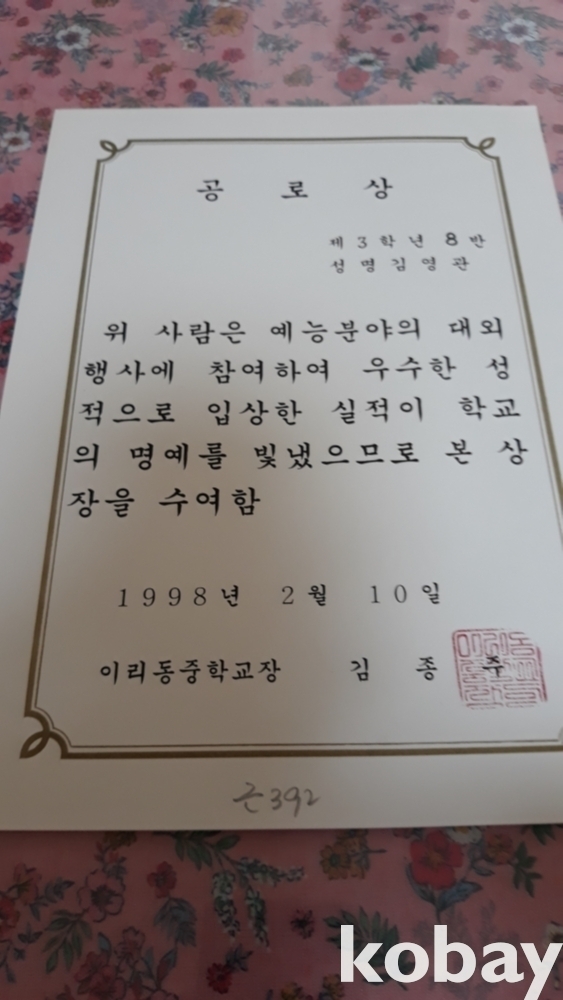 공 로 상
제 3 학 년 8 반
성 명 김 영 관
위 사람은 예능분야의 대외
행사에 참여하여 우수한 성
적으로 입상한 실적이 학교
의 명예를 빛냈으므로 본 상
장을 수여함
1998년 2월 10일
이리동중학교장 김 종 주
근392
kobay